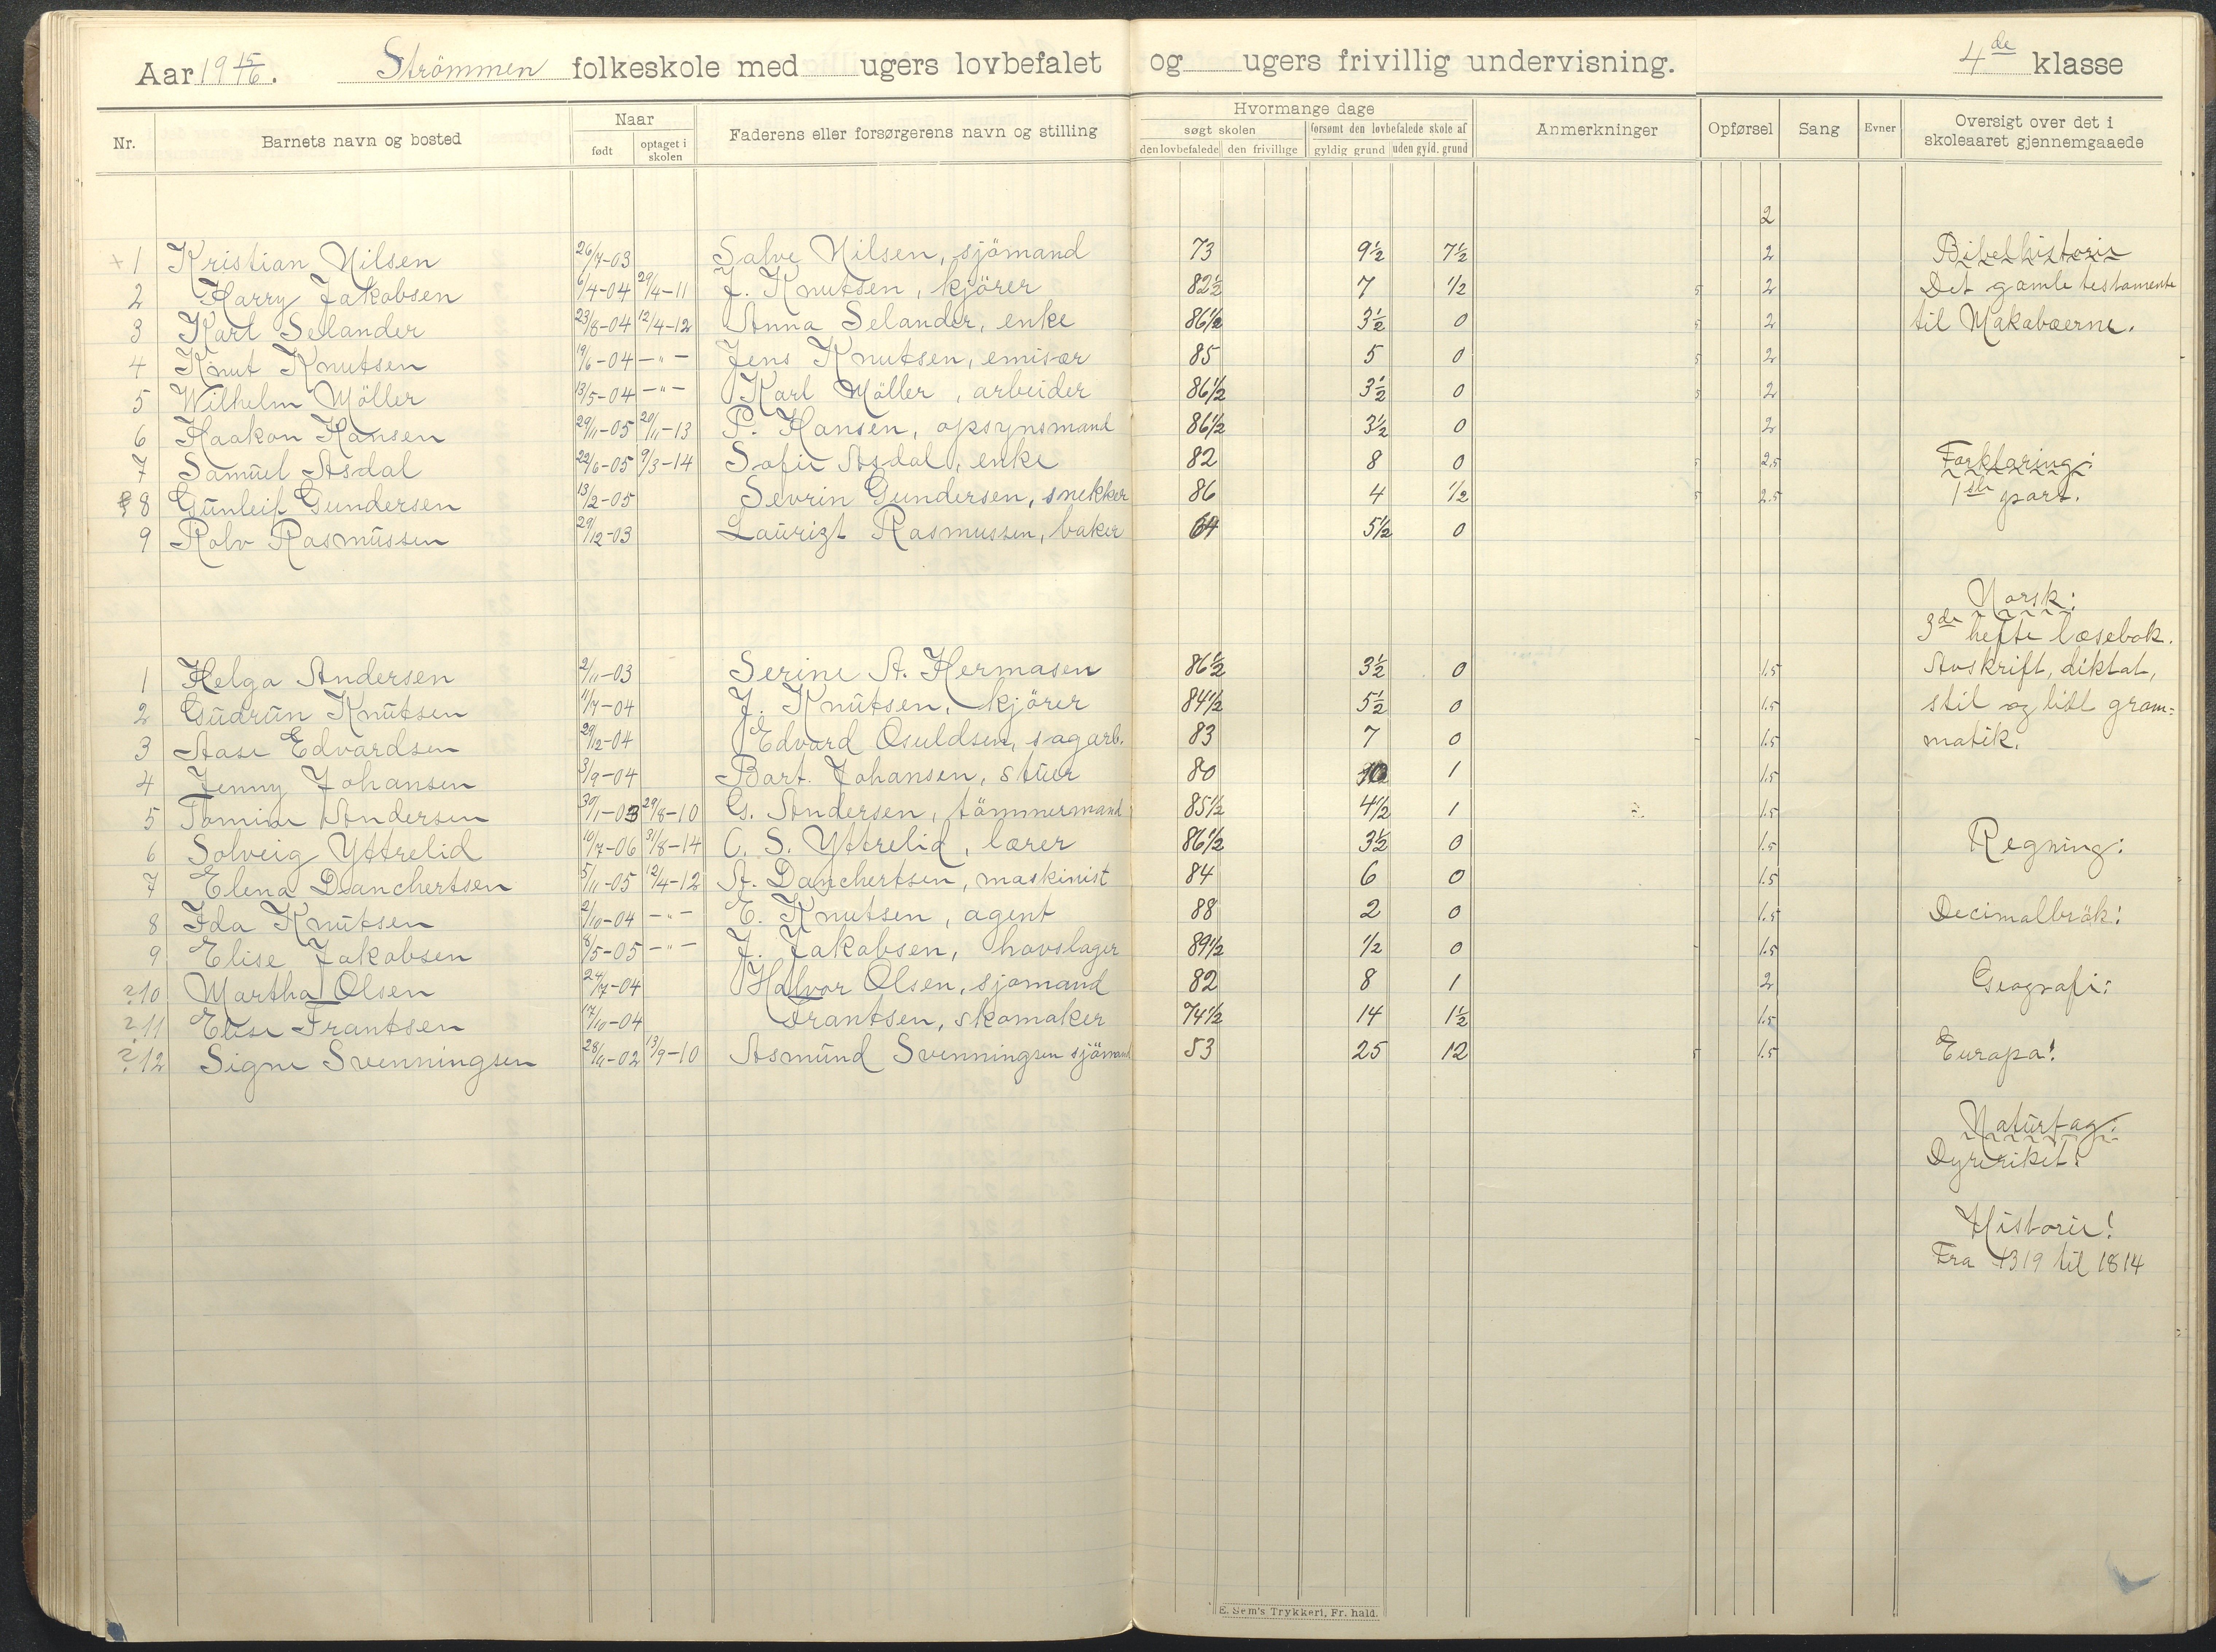 Aar 19 15/16. Strömmen folkeskole med ugers lovbefalet og ugers frivillig undervisning. 4de klasse
Nr. Barnets navn og bosted Naar født optaget i skolen Faderens eller forsørgerens navn og stilling Hvormange dage søgt skolen den lovbefalede den frivillige forsømt den lovbefalede skole af gyldig grund uden gyld. grund Anmerkninger Opførsel Sang Evner Oversigt over det i skoleaaret gjennemgaaede
2
+ 1 Kristian Nilsen 26/7-03 Salve Nilsen, sjömand 73 9½ 7½ 2 Bibelhistorie
2 Harry Jakobsen 6/4-04 29/4-11 J. Knutsen, kjörer 82½ 7 ½ 2 Det gamle testamente
3 Karl Selander 23/8-04 12/4-12 Anna Selander, enke 86½ 3½ 0 2 til Makabæerne.
4 Knut Knutsen 19/6-04 -"- Jens Knutsen, emisær 85 5 0 2
5 Wilhelm Möller 13/5-04 -"- Karl Möller, arbeider 86½ 3½ 0 2
6 Haakon Hansen 29/11-05 20/11-13 P. Hansen, opsynsmand 86½ 3½ 0 2
7 Samuel Asdal 22/6-05 9/3-14 Sofie Asdal, enke 82 8 0 2.5 Forklaring:
8 Gunleif Gundersen 13/2-05 Sevrin Gundersen, snekker 86 4 ½ 2.5 1ste part.
9 Rolv Rasmussen 29/12-03 Laurizt Rasmussen, baker 64 5½ 0
Norsk:
3de hefte læsebok.
1 Helga Andersen 2/11-03 Serine A. Hermasen 86½ 3½ 0 1.5 Avskrift, diktat,
2 Gudrun Knutsen 11/7-04 J. Knutsen, kjörer 84½ 5½ 0 1.5 stil og litt gram=
3 Aase Edvardsen 29/12-04 Edvard Osuldsen, sagarb. 83 7 0 1.5 matik.
4 Jenny Johansen 3/9-04 Bart. Johansen, stuer 80 10 1 1.5
5 Tomine Andersen 30/1-03 29/8-10 G. Andersen, tömmermand 85½ 4½ 1 1.5
6 Solveig Yttrelid 10/7-06 31/8-14 C. S. Yttrelid, lærer 86½ 3½ 0 1.5 Regning:
7 Elena Danchertsen 5/11-05 12/4-12 A. Danchertsen, maskinist 84 6 0 1.5
8 Ida Knutsen 2/10-04 -"- E. Knutsen, agent 88 2 0 1.5 Decimalbrök:
9 Elise Jakobsen 8/5-05 -"- J. Jakobsen, hovslager 89½ ½ 0 1.5
? 10 Martha Olsen 24/7-04 Halvor Olsen, sjömand 82 8 1 2 Geografi:
? 11 Elise Frantsen 17/10-04 Frantsen, skomaker 74½ 14 1½ 1.5
? 12 Signe Svenningsen 28/9-02 13/9-10 Asmund Svenningsen sjömand 53 25 12 1.5 Europa!
Naturfag:
Dyreriket:
Historie!
Fra 1319 til 1814
E. Sem's Trykkeri, Fr. hald.